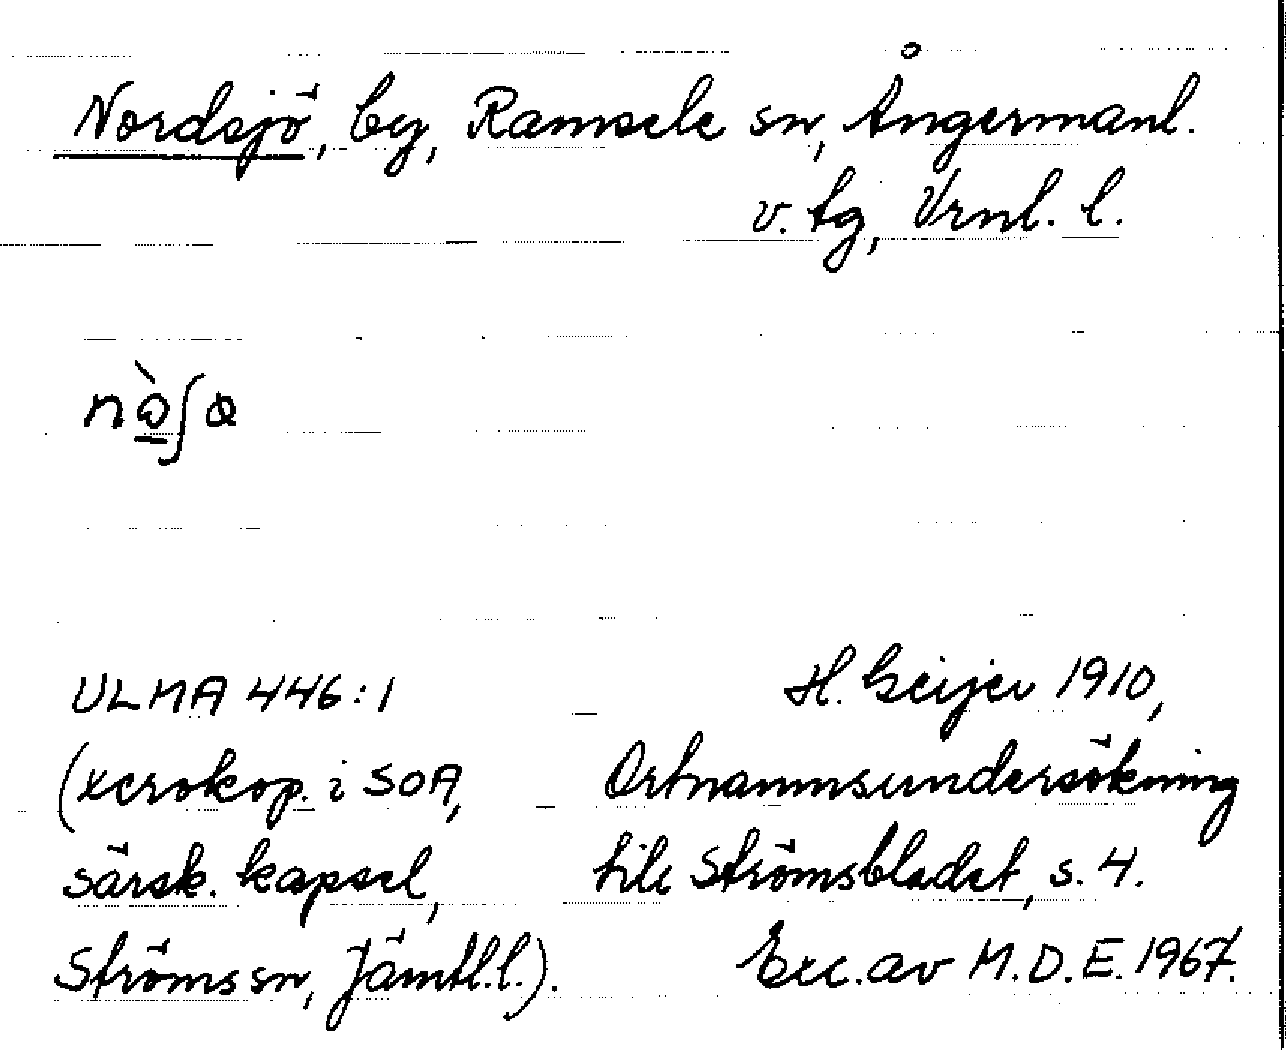 Nordsjö, by, Ramsele sn, Ångermanl.
v. tg, Vrnl. l.
ULMA 446:1
H. Geijer 1910,
(xerokop. i SOA,
Ortnamnsundersökning
särsk. kapsel,
till Strömsbladet, s. 4.
Ströms sn, Jämtl. l.).
Exc. av M.D.E. 1967.